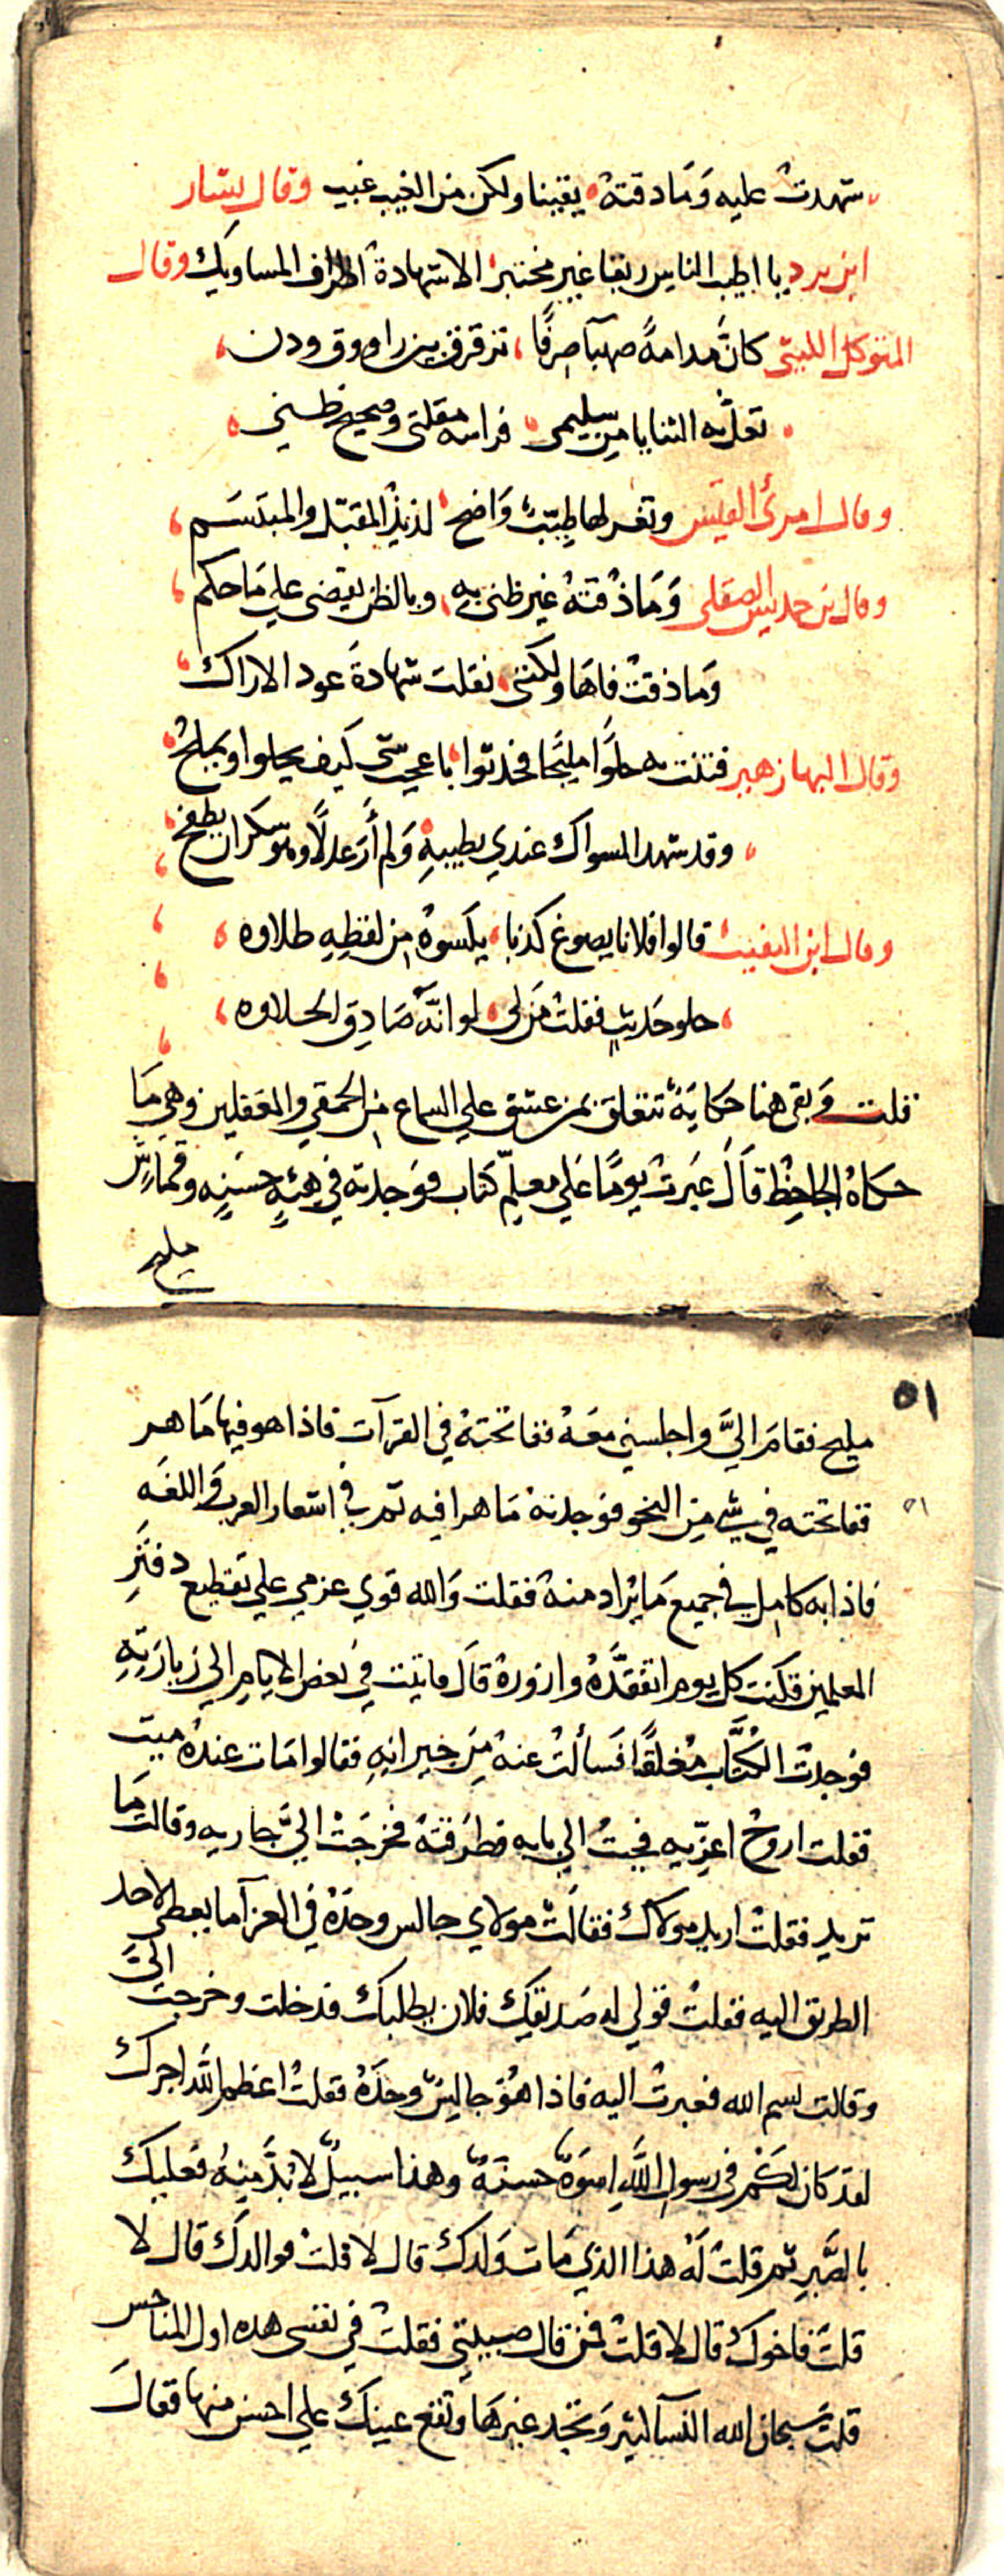 شهدت عليه وَمَا دقتهُ يقينا ولكن من الغيب غيب وقال بشار
ابن برد يا اطيب الناس ريقا غير مختبر الا شهادة اطراف المساويك وقال
المتوكل الليثى كانَّ مدامةً صهبآ صرفًا تزقرق بين راووق ودن
تعل به الثنايا من سليمى فراسه مقلتى وصحيح ظنى
وقال امرئ القيس وثغر لها طيبٌ وَاضح لذيذ المقبّل والمبتسَم
وقال بن حديس الصقلى وَمَا ذُقتهُ غير ظنى به وبالظن يقضى علي مَا حكم
وَما ذقتْ فاهَا ولكننى نقلت شهادةَ عود الاراك
وقال البها زهير فتنت به حلوًا مليحًا فحدثوا باعجب شى كيف يحلوا ويملح
وقد شهد السواك عندي بطيبهِ وَلم أرَ عدلًا وهو سكران يطفح
وقال ابن النفيب قالوا فلانا يصوغ كذبا يكسوهُ من لفظِهِ طلاوه
حلو حَديث فقلت مَن لى لو انّه صَادق الحلاوه
قلت وَبقى هنا حكايَة تتعلق بمن عشق علي السماع من الحمقي والمغفلين وهى مَا
حكاهُ الجاحظ قاَلَ عَبرتُ يومًا عَلي معلمّ كتاب فوَجدته في هيئهٍ حسَنهٍ وقماشٍ
مليح
٥١
مليح فقامَ اليَّ واجلسني معَهُ ففاتحتهُ في القرآت فاذا هو فيها مَاهر
٥١
ففاتحته في شي من النحو فوَجدتهُ مَاهرا فيه ثم في اشعار العرب وَاللغَه
فاذا به كامل في جميع مَا يُراد منهُ فقلت وَالله قوي عزمي علي تقطيع دفتر
المعلمين فكنت كل يوم اتفقَّدهُ وازورهُ قاَل فاتيت في بَعض الايام الي زيارَتِهِ
فوَجدت الكتَّاب مغلَقًا فسَألتُ عنهُ مِن جيرانهِ فقالوا مَات عندهُ ميت
فقلت اروحُ اعزّيه فجيتُ الي بابه فطرَقتهُ فخرجَتْ اليَّ جاريه وقالت مَا
تريد فقلتُ اريد مولاك فقالَتْ مولاي جالس وحدَهُ في العزآ ما يعطي لاحد
الطريق اليه فقلتُ قولي له صَديقك فلان يطلبك فدخلت وخرجت اليَّ
وقالت بسم الله فعبرتُ اليه فاذا هوَ جالسٌ وحدَهُ فقلتُ اعظم اللَّه اجرك
لقد كان لكم في رسولِ اللَّهِ اسوَةٌ حسنَةٌ وهذا سبيلٌ لا بُدَّ منِهُ فعَليك
بالصَّبرِ ثم قلتُ لهُ هذا الذي مَات وَلدك قال لا قلتُ فوالدك قال لا
قلتَ فاخوك قال لا قلتُ فمن قال حبيبتي فقلتُ في نفسى هذه اول المناحس
قلتُ سبحان الله النسآ كثير وَتجد غيرهَا وتقع عينك علي احسن منها فقالَ